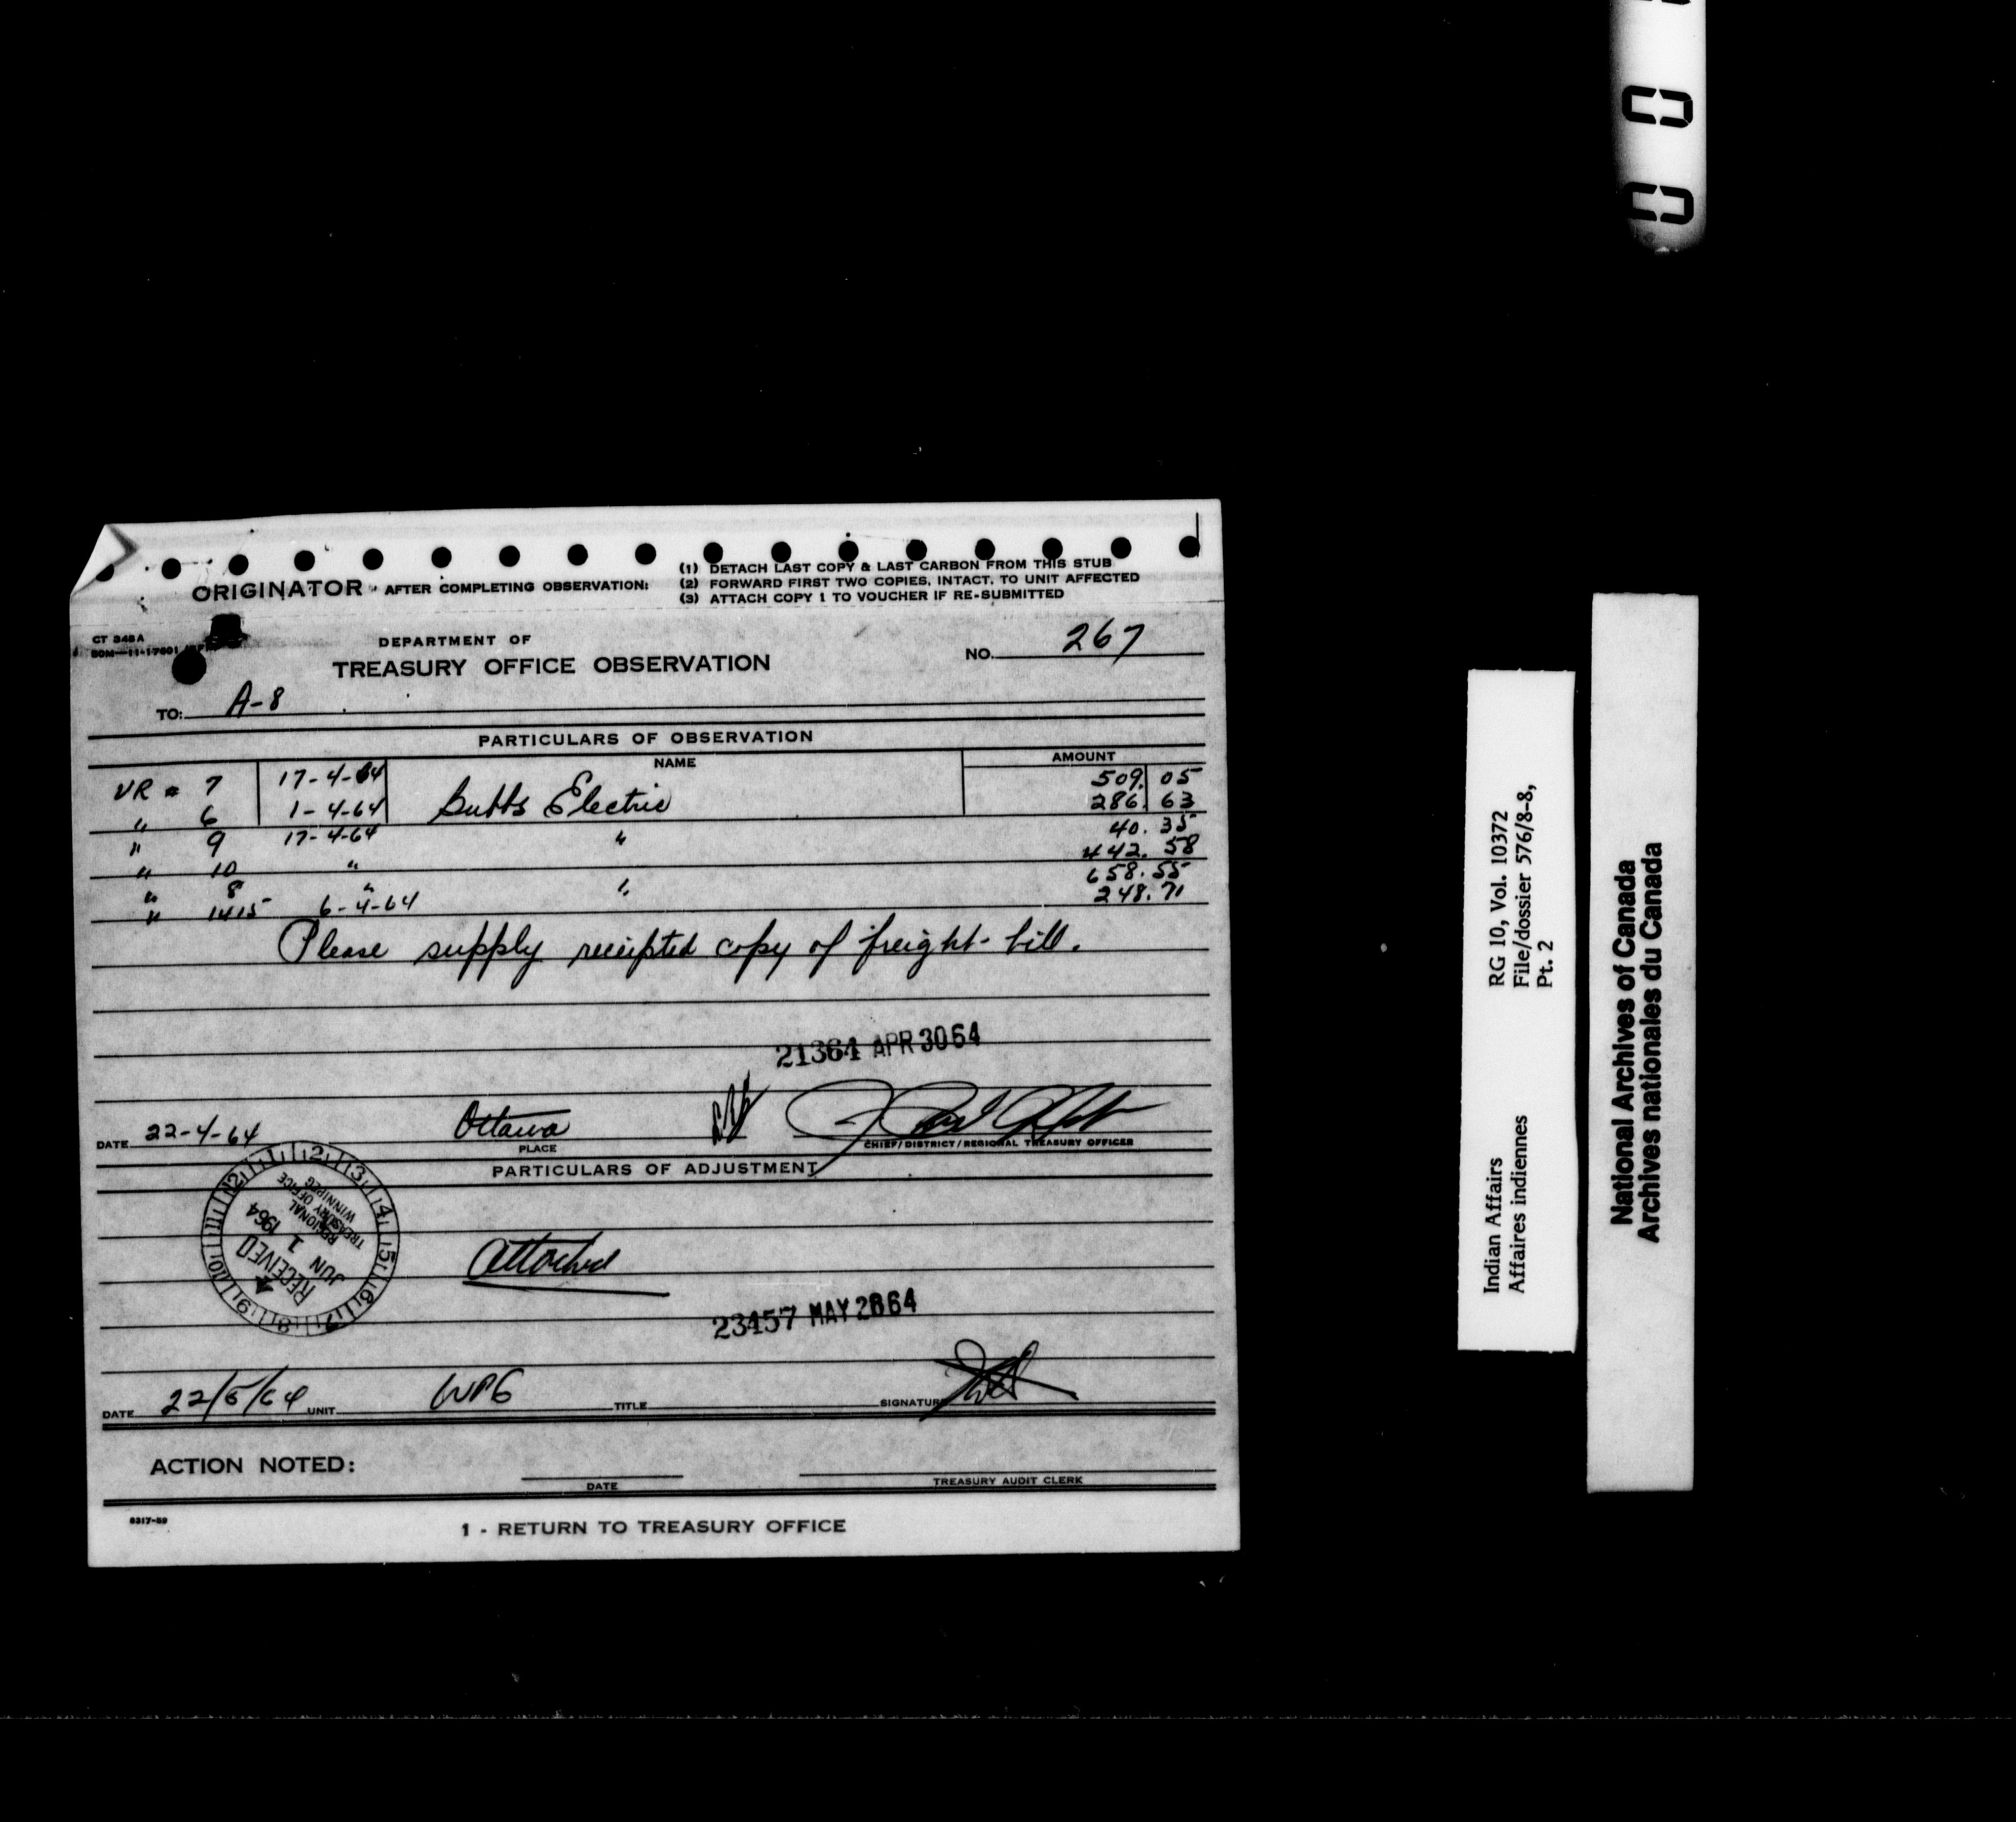 ORIGINATOR - AFTER COMPLETING OBSERVATION:
(1) DETACH LAST COPY & LAST CARBON FROM THIS STUB
(2) FORWARD FIRST TWO COPIES, INTACT, TO UNIT AFFECTED
(3) ATTACH COPY 1 TO VOUCHER IF RE-SUBMITTED
CT 345A
DEPARTMENT OF
TREASURY OFFICE OBSERVATION
NO. 267
TO: A-8
PARTICULARS OF OBSERVATION
NAME AMOUNT
VR # 7 17-4-64 509. 05
" 6 1-4-64 Butts Electric 286. 63
" 9 17-4-64 " 40. 35
" 10 " 442. 58
" 8 " " 658. 55
" 1415 6-4-64 248. 71
Please supply receipted copy of freight bill.
21364 APR 30 64
DATE 22-4-64 Ottawa
PLACE
CHIEF/DISTRICT/REGIONAL TREASURY OFFICER
PARTICULARS OF ADJUSTMENT
RECEIVED
JUN 1 1964
REGIONAL
TREASURY OFFICE
WINNIPEG
1 2 3 4 5 6 7 8 9 10 11 12
Attached
23457 MAY 2864
DATE 22/5/64 UNIT WPG TITLE SIGNATURE
ACTION NOTED:
DATE
TREASURY AUDIT CLERK
6317-59
1 - RETURN TO TREASURY OFFICE
Indian Affairs RG 10, Vol. 10372
Affaires indiennes File/dossier 576/8-8,
Pt. 2
National Archives of Canada
Archives nationales du Canada